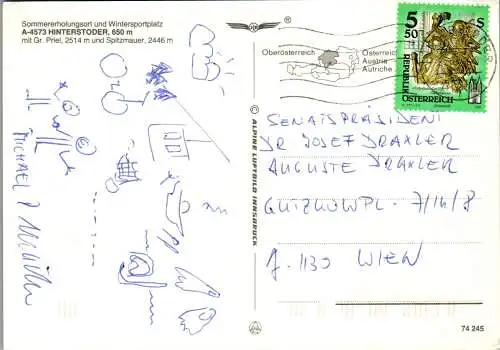 Sommererholungsort und Wintersportplatz
A-4573 HINTERSTODER, 650 m
mit Gr. Priel, 2514 m und Spitzmauer, 2446 m
®
MICHAEL
© ALPINE LUFTBILD INNSBRUCK
Oberösterreich
Österreich
Austria
Autriche
5 S
50
REPUBLIK
ÖSTERREICH
SENATSPRÄSIDENT
DR JOSEF DRAXLER
AUGUSTE DRAXLER
GUTZKOWPL. 7/14/8
A-1130 WIEN
74 245